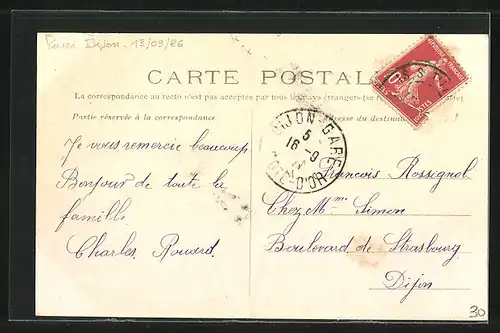 Puces Dijon - 13/09/86
CARTE POSTALE
La correspondance au recto n'est pas acceptée par tous les pays étrangers (se
Partie réservée à la correspondance
Adresse du destinataire
DIJON-GARE
5
16 - 9
CÔTE-D'OR
10
POSTES
Je vous remercie beaucoup
Bonjour de toute la
famille
Charles Rouard
François Rossignol
Chez Mme Simon
Boulevard de Strasbourg
Dijon
30